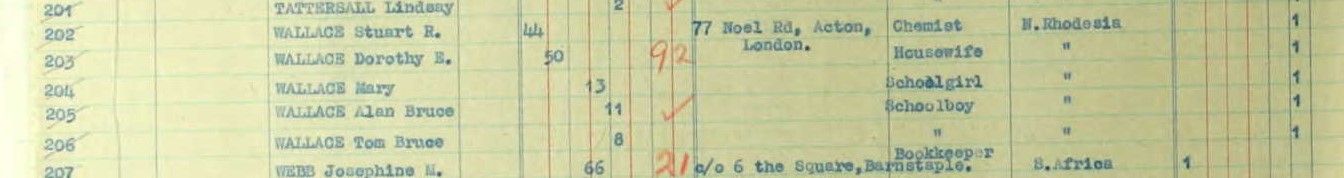 201 TATTERSALL Lindsay 2 "
202 WALLACE Stuart R. 44 77 Noel Rd, Acton, London. Chemist N.Rhodesia 1
203 WALLACE Dorothy E. 50 92 Housewife " 1
204 WALLACE Mary 13 Schoolgirl " 1
205 WALLACE Alan Bruce 11 Schoolboy " 1
206 WALLACE Tom Bruce 8 " " 1
207 WEBB Josephine M. 66 21 c/o 6 the Square, Barnstaple. Bookkeeper S.Africa 1